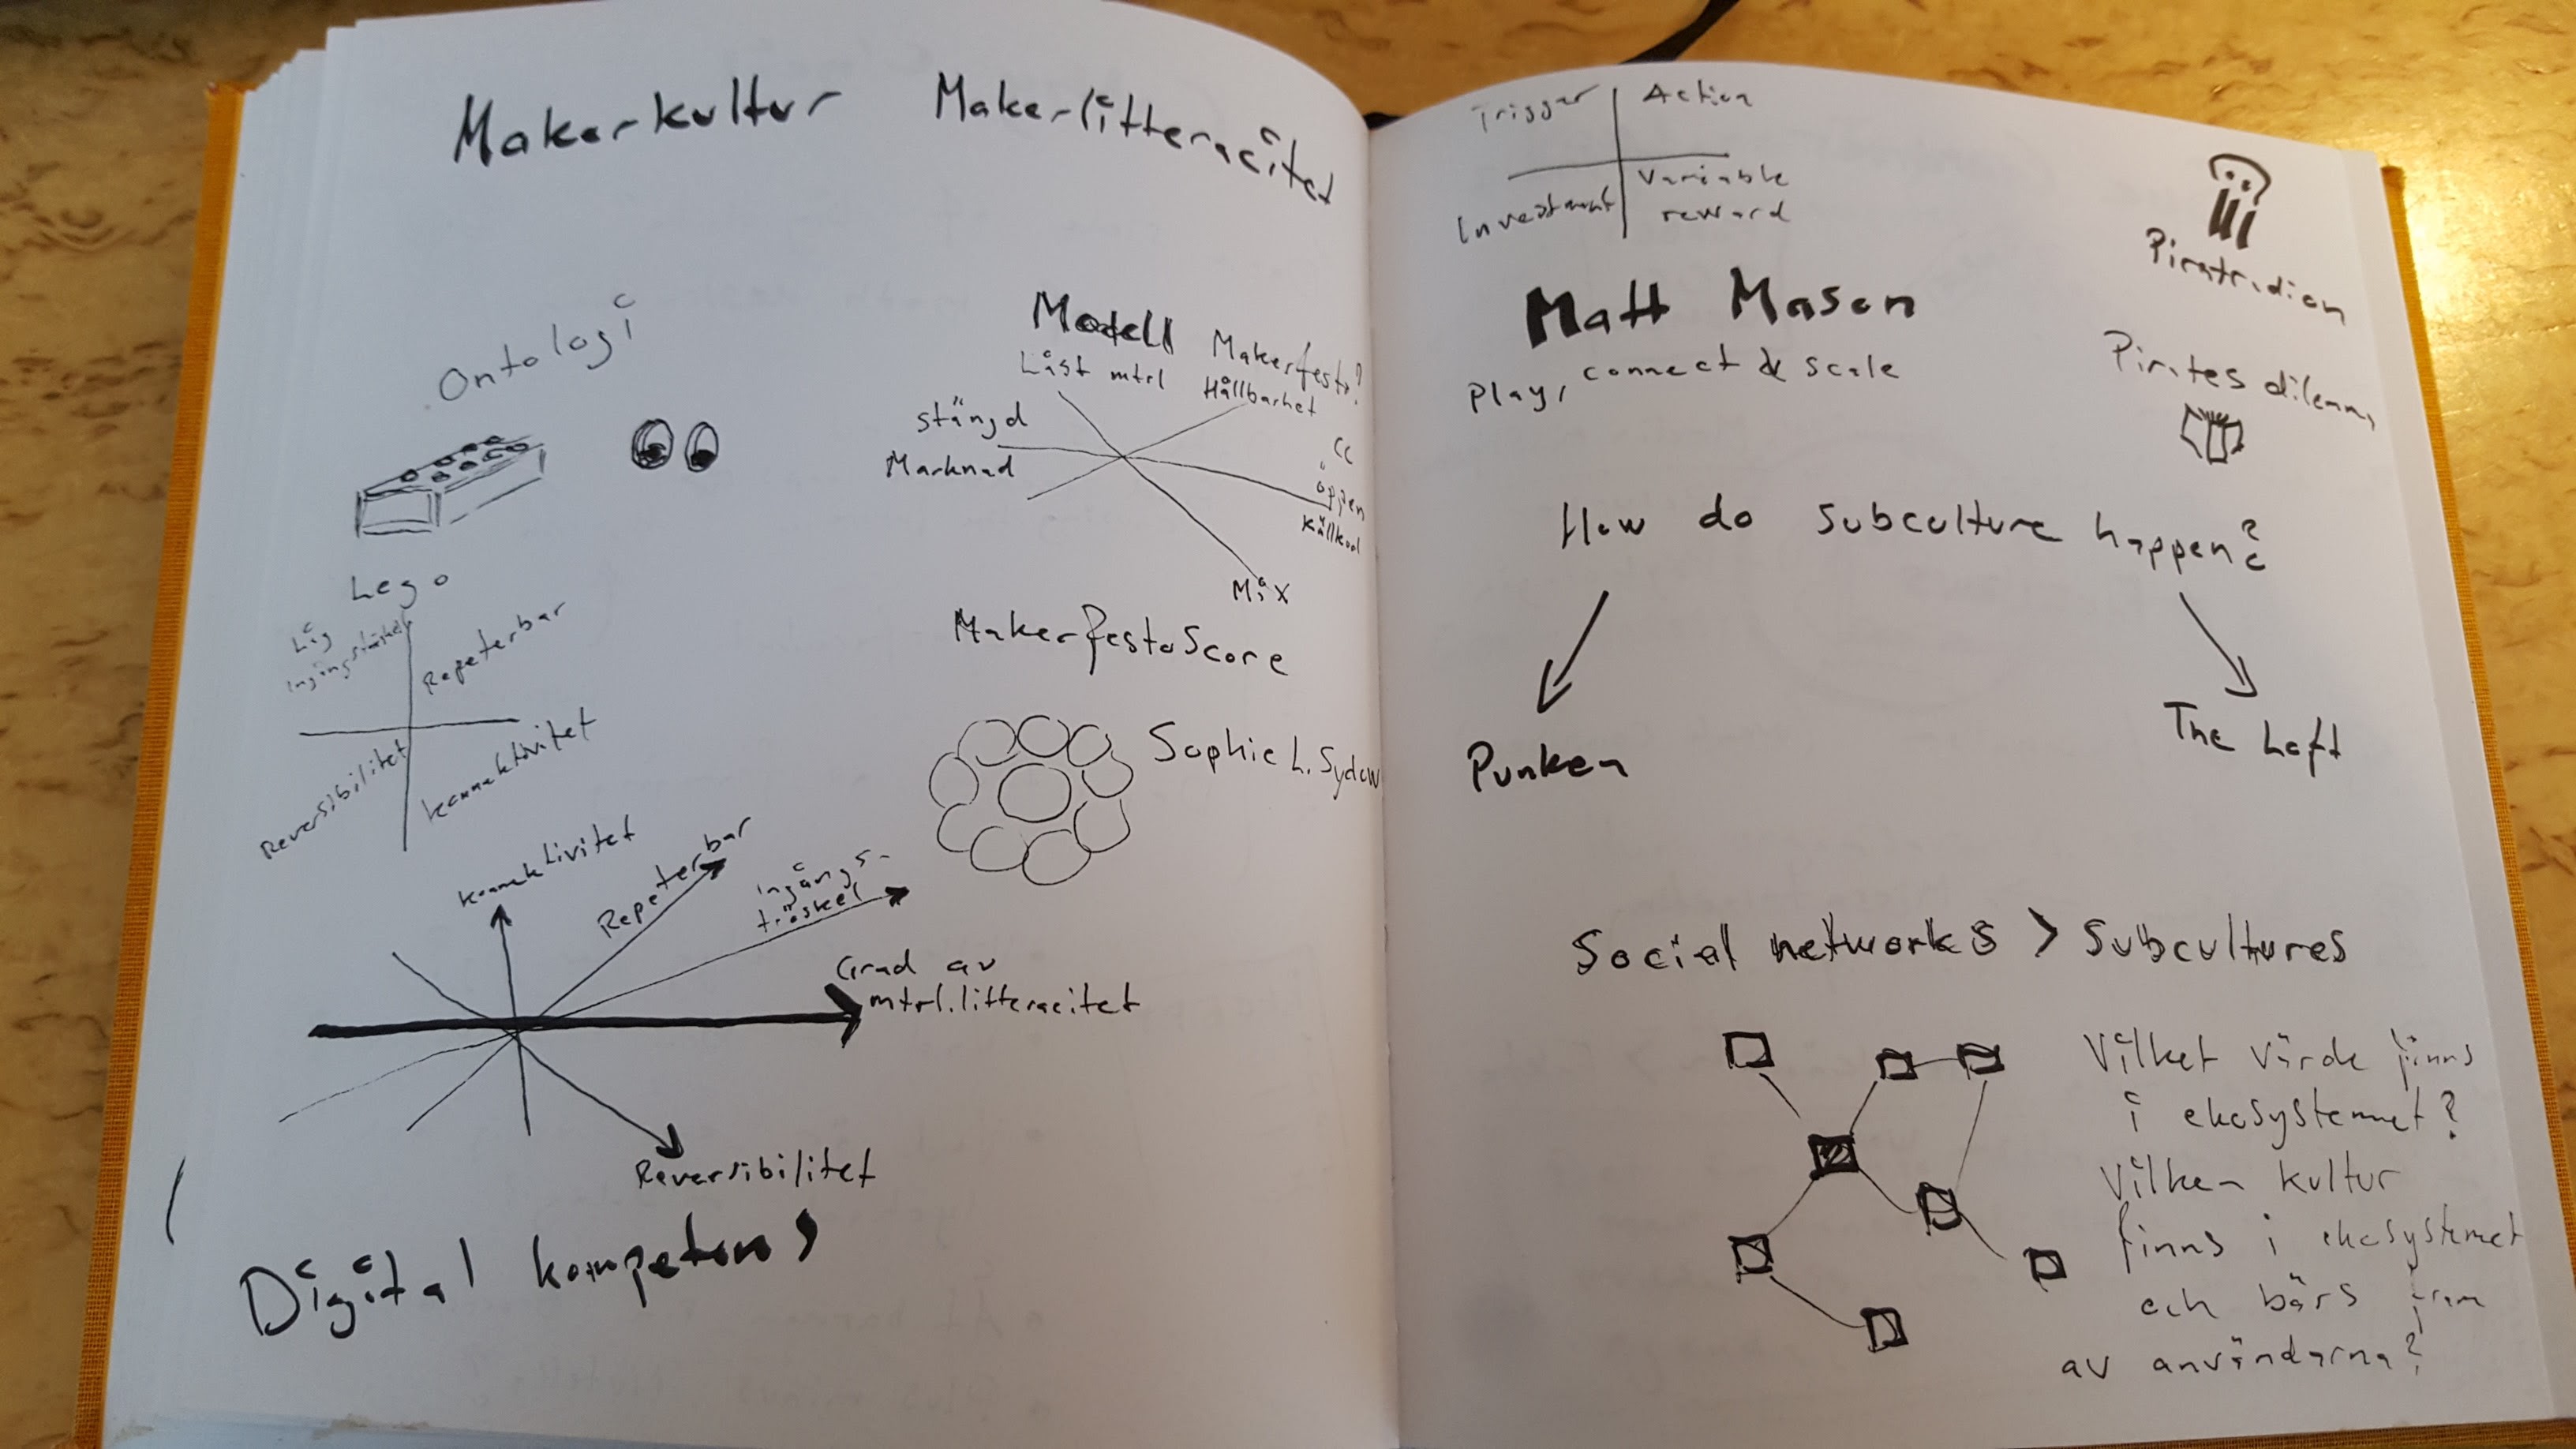 Makerkultur Makerlitteracitet
Ontologi
Lego
Låg
ingångströskel
Repeterbar
Reversibilitet
konnektivitet
Modell Makerfesto?
Låst mtrl
Hållbarhet
stängd
Marknad
CC
öppen
källkod
Mix
MakerfestoScore
Sophie L. Sydow
konnektivitet
Repeterbar
ingångs-
tröskel
Grad av
mtrl.litteracitet
Reversibilitet
Digital kompetens
Trigger
Action
Investment
Variable
reward
Matt Mason
Play, connect & scale
Pirates dilemma
How do subculture happen?
Punken
The Loft
Social networks > Subcultures
Vilket värde finns
i ekosystemet?
Vilken kultur
finns i ekosystemet
och bärs fram
av användarna?